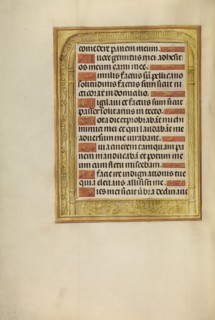 comedere panem meum.
voce gemitus mei adhesit
os meum carni mee.
imilis factus sū pellicano
solitudinis factus sum sicut ni
cticorax in domicilio.
igilavi et factus sum sicut
passer solitarius in tecto.
ota die exprobrabāt michi
inimici mei et qui laudabāt me
adversum me iurabant.
uia cinerem tamquam pa
nem manducabā et potum me
um cum fletu miscebam.
facie ire indignationis tue
quia elevans allisisti me.
ies mei sicut ūbra declinave